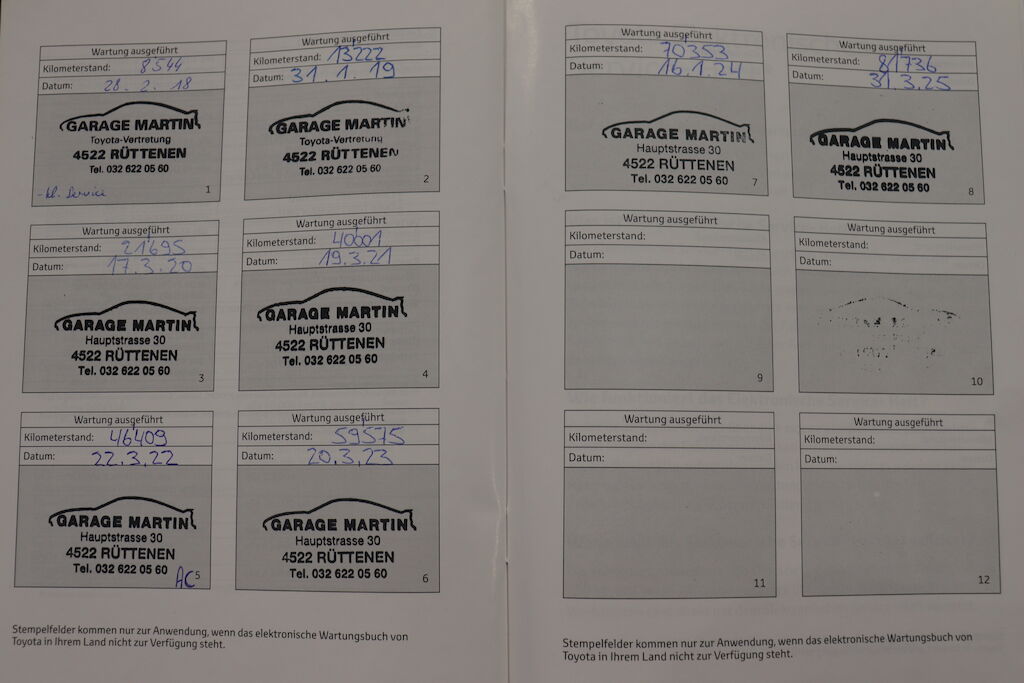 Wartung ausgeführt
Kilometerstand: 8544
Datum: 28. 2. 18
GARAGE MARTIN
Toyota-Vertretung
4522 RÜTTENEN
Tel. 032 622 05 60
- kl. Service
1
Wartung ausgeführt
Kilometerstand: 13222
Datum: 31. 1. 19
GARAGE MARTIN
Toyota-Vertretung
4522 RÜTTENEN
Tel. 032 622 05 60
2
Wartung ausgeführt
Kilometerstand: 21695
Datum: 17.3.20
GARAGE MARTIN
Hauptstrasse 30
4522 RÜTTENEN
Tel. 032 622 05 60
3
Wartung ausgeführt
Kilometerstand: 40001
Datum: 19.3.21
GARAGE MARTIN
Hauptstrasse 30
4522 RÜTTENEN
Tel. 032 622 05 60
4
Wartung ausgeführt
Kilometerstand: 46409
Datum: 22.3.22
GARAGE MARTIN
Hauptstrasse 30
4522 RÜTTENEN
Tel. 032 622 05 60
AC 5
Wartung ausgeführt
Kilometerstand: 59575
Datum: 20.3.23
GARAGE MARTIN
Hauptstrasse 30
4522 RÜTTENEN
Tel. 032 622 05 60
6
Stempelfelder kommen nur zur Anwendung, wenn das elektronische Wartungsbuch von
Toyota in Ihrem Land nicht zur Verfügung steht.
Wartung ausgeführt
Kilometerstand: 70353
Datum: 16.1.24
GARAGE MARTIN
Hauptstrasse 30
4522 RÜTTENEN
Tel. 032 622 05 60
7
Wartung ausgeführt
Kilometerstand: 81736
Datum: 31.3.25
GARAGE MARTIN
Hauptstrasse 30
4522 RÜTTENEN
Tel. 032 622 05 60
8
Wartung ausgeführt
Kilometerstand:
Datum:
9
Wartung ausgeführt
Kilometerstand:
Datum:
10
Wartung ausgeführt
Kilometerstand:
Datum:
11
Wartung ausgeführt
Kilometerstand:
Datum:
12
Stempelfelder kommen nur zur Anwendung, wenn das elektronische Wartungsbuch von
Toyota in Ihrem Land nicht zur Verfügung steht.